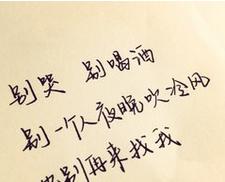 别哭 别喝酒
别一个人夜晚吹冷风
别再来找我